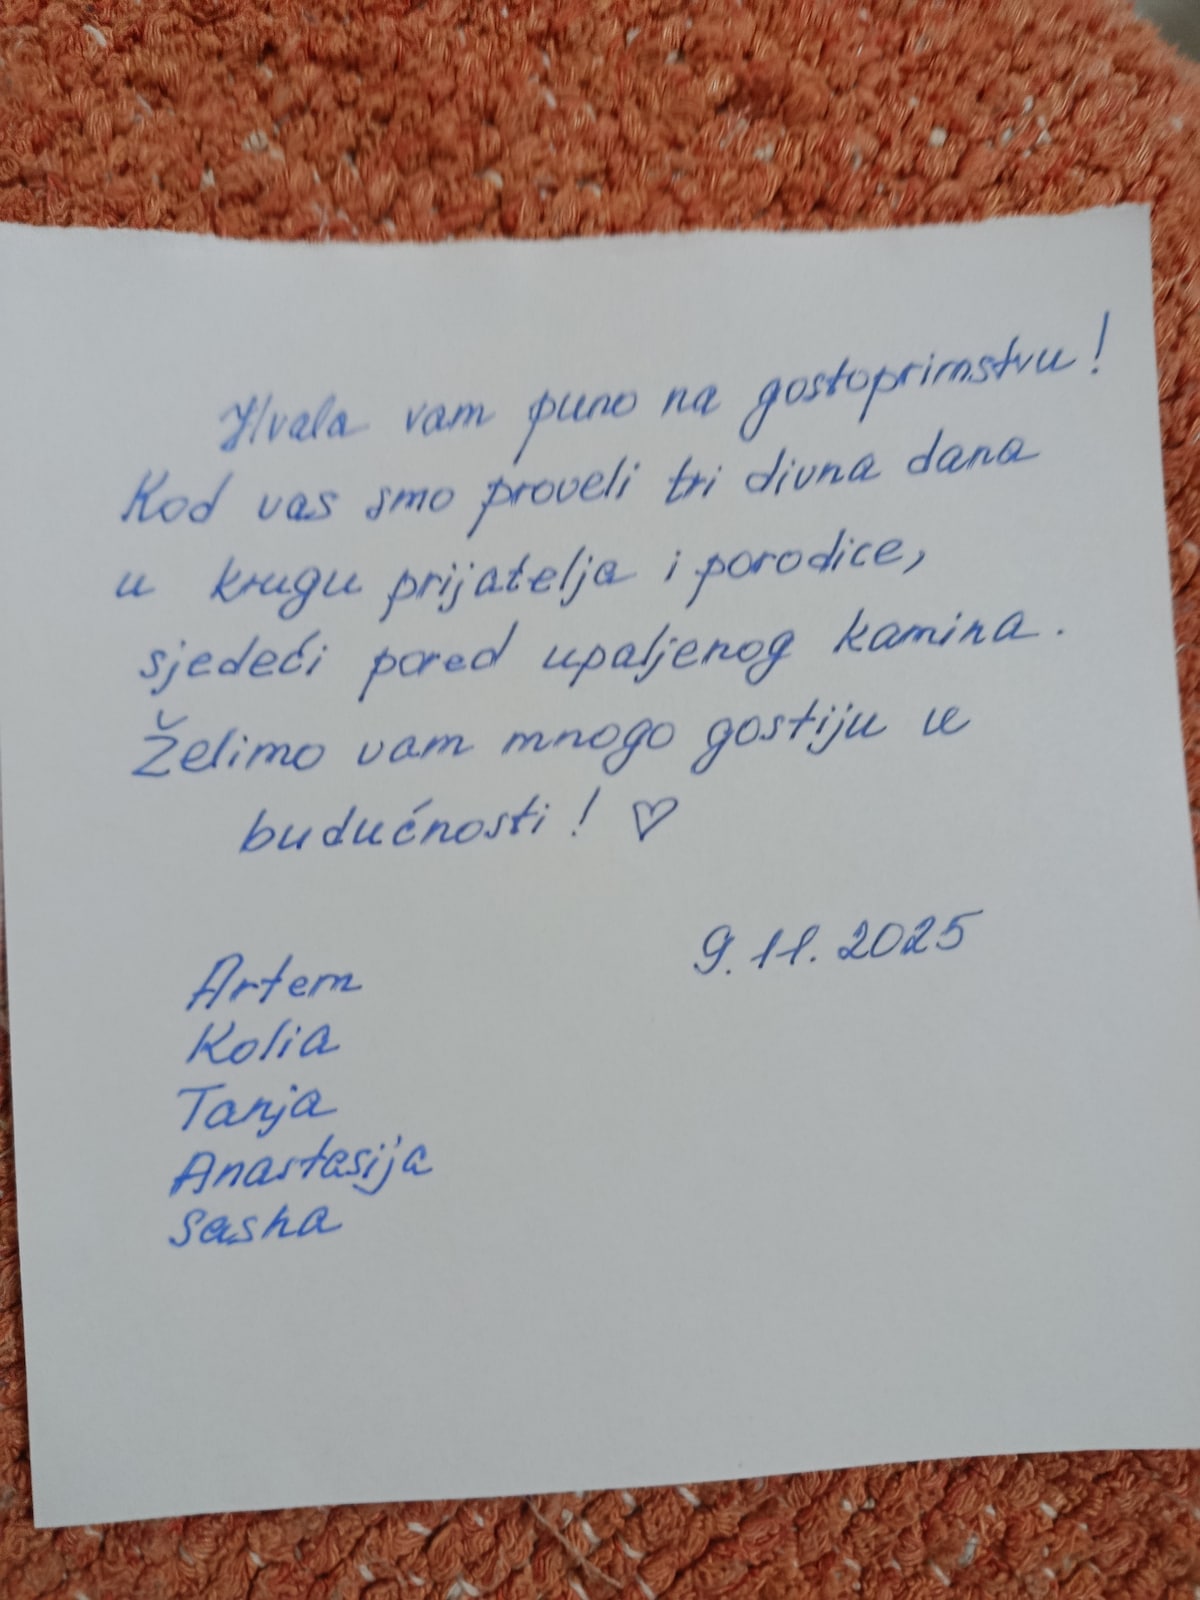 Hvala vam puno na gostoprimstvu!
Kod vas smo proveli tri divna dana
u krugu prijatelja i porodice,
sjedeći pored upaljenog kamina.
Želimo vam mnogo gostiju u
budućnosti! ♡
9.11.2025
Artem
Kolia
Tanja
Anastasija
Sasha